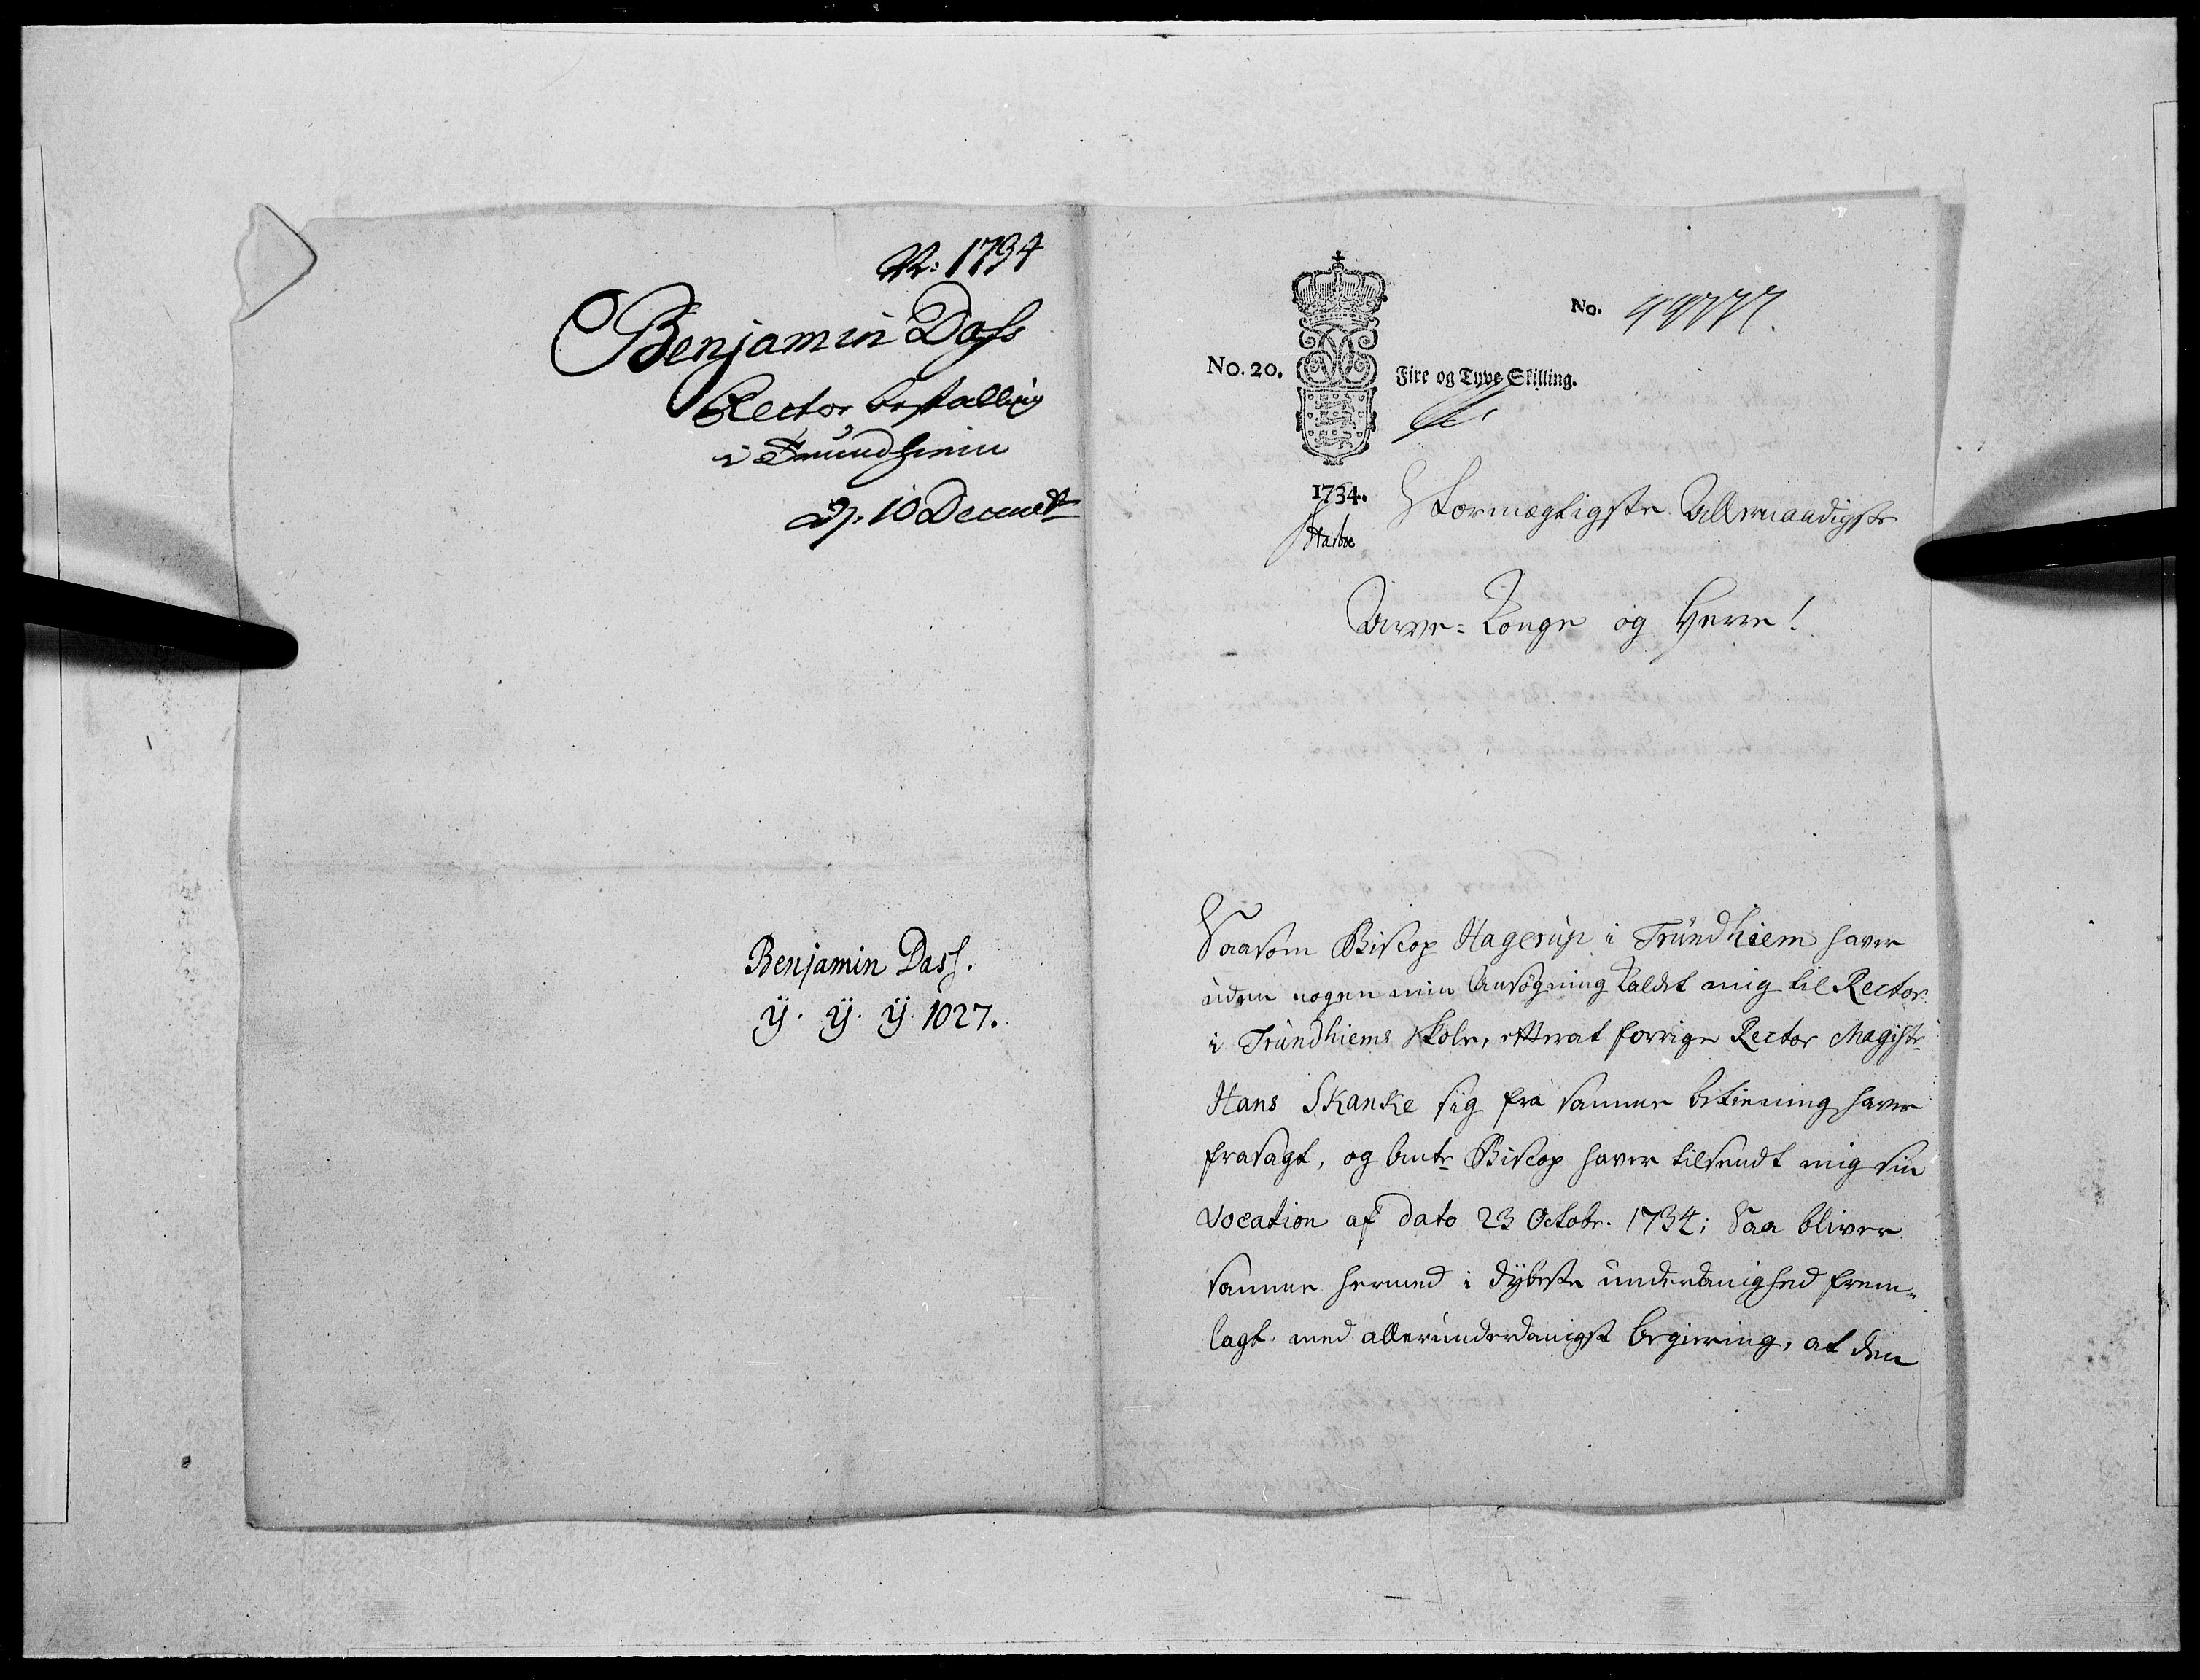 N: 1734
Benjamin Dass
Rector bestalling
i Trundhiem
D. 10 Decembr
Benjamin Dass.
ÿ. ÿ. ÿ. 1027.
No.
No. 20.
Fire og Tyve Skilling.
1734.
Stormægtigste Allernaadigste
Arve-Konge og Herre!
Saasom Biskop Hagerup i Trundhiem haver
uden nogen min Ansøgning kaldet mig til Rector
i Trundhiems Skole, efterat forrige Rector Magistr
Hans Skanke sig fra samme betiening haver
frasagt, og bemte Biskop haver tilsendt mig sin
Vocation af dato 23 Octobr. 1734; Saa bliver
samme hermed i dybeste underdanighed frem-
lagt med allerunderdanigst begiering, at den